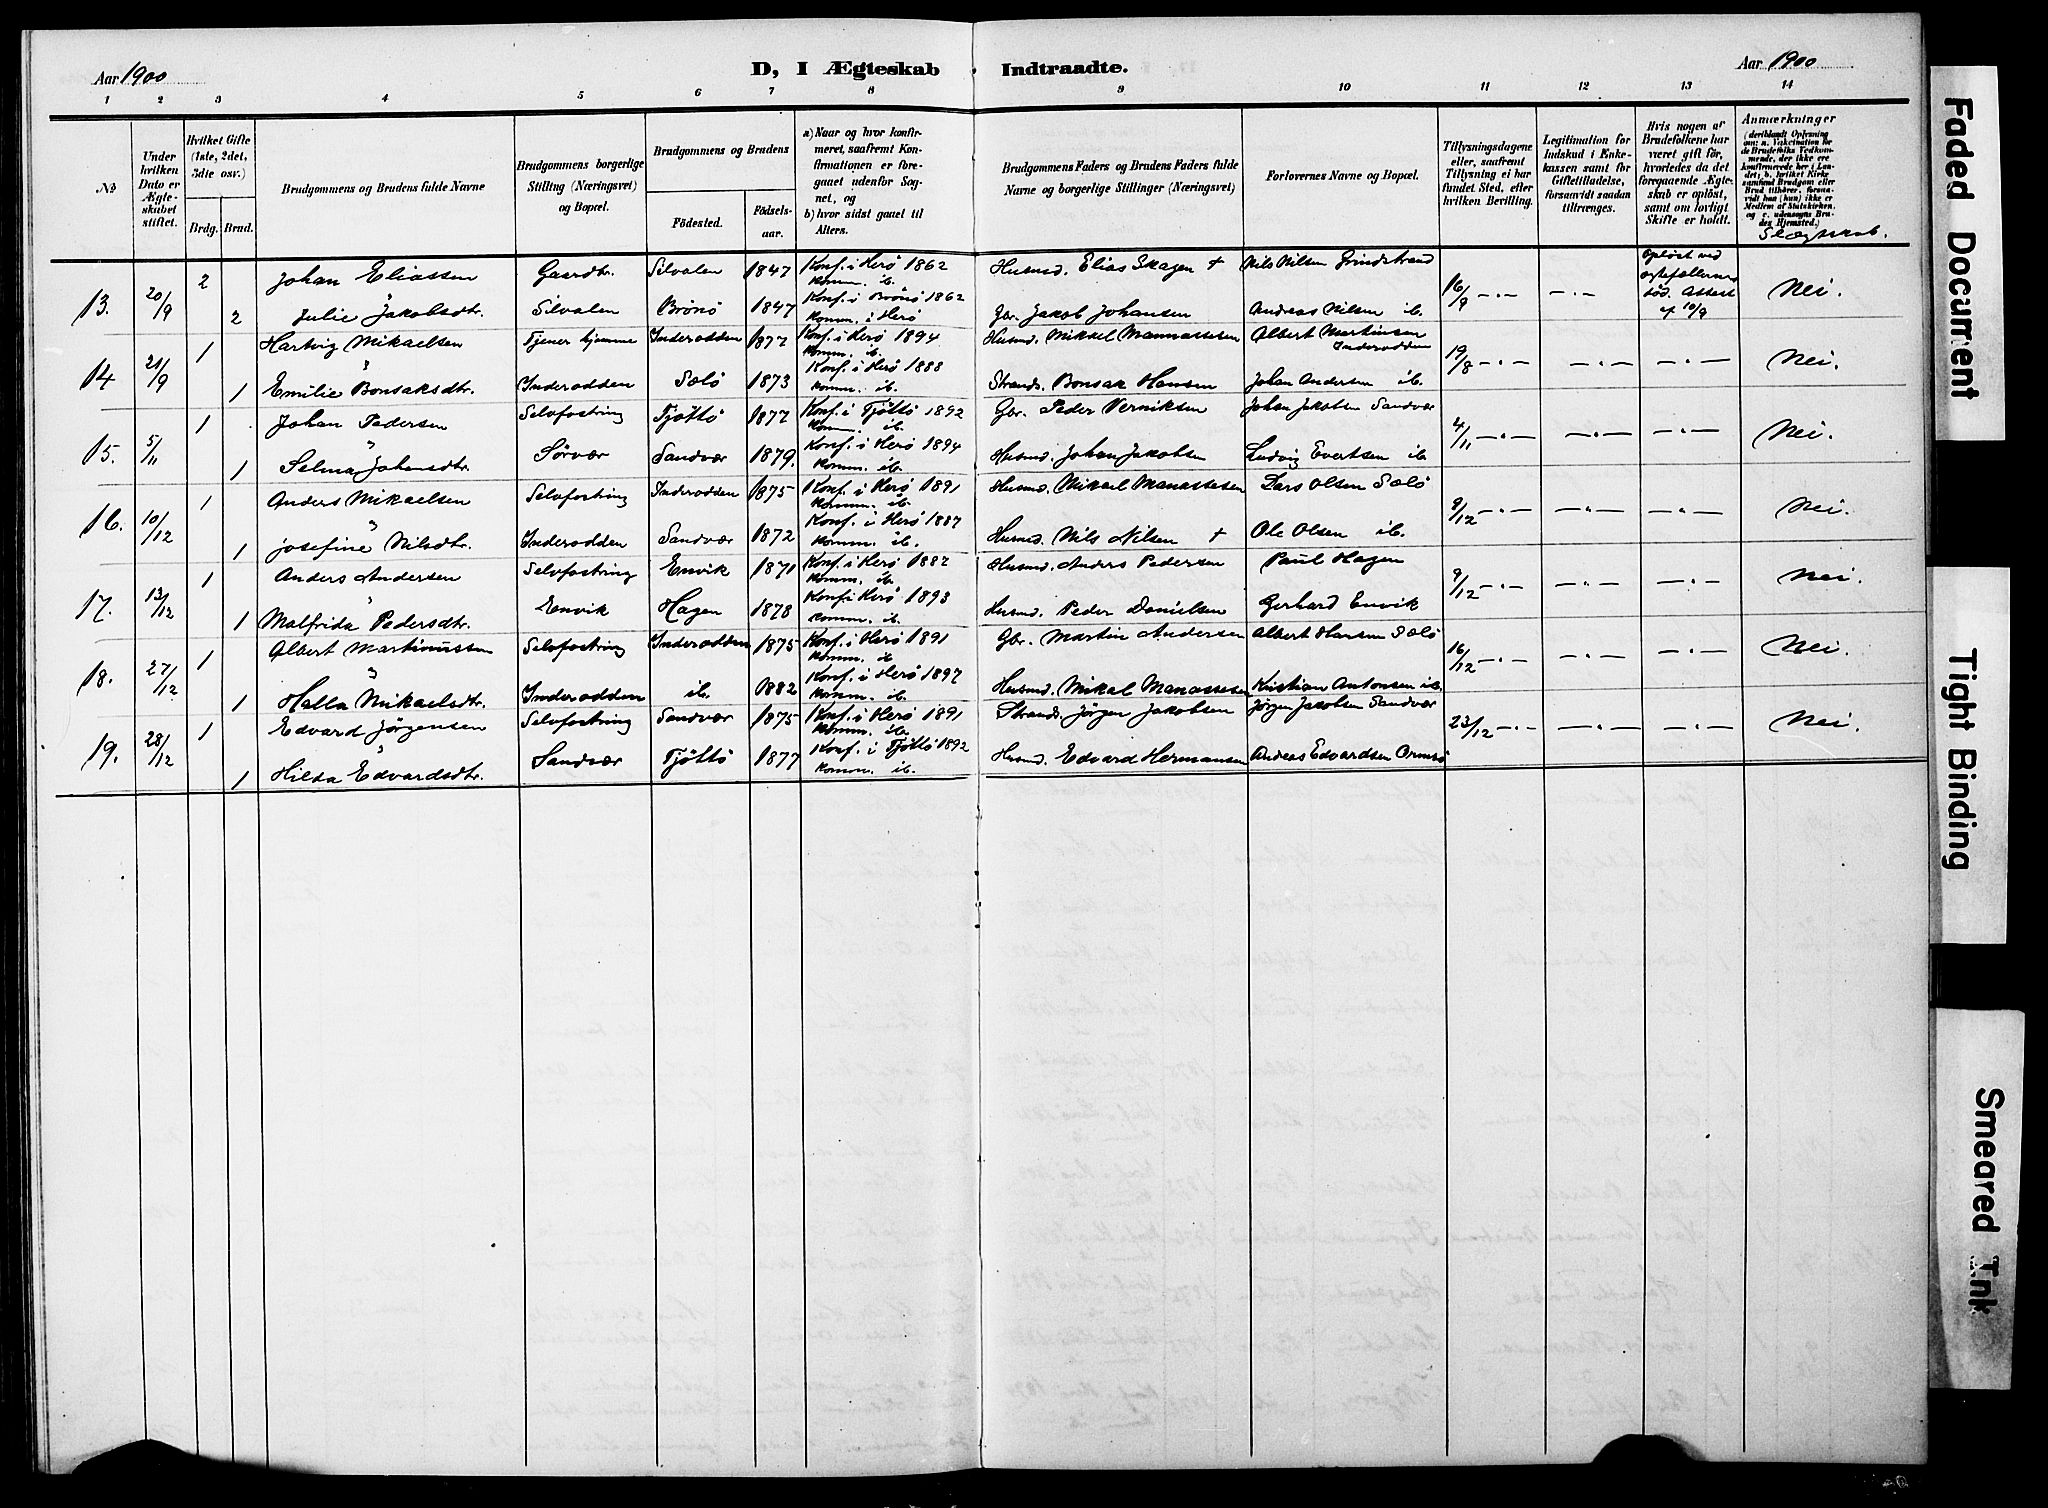 Aar 1900 D, I Ægteskab Indtraadte. Aar 1900
1 2 3 4 5 6 7 8 9 10 11 12 13 14
No
Under hvilken Dato er Ægteskabet stiftet.
Hvilket Gifte (1ste, 2det, 3die osv.)
Brdg. Brud.
Brudgommens og Brudens fulde Navne
Brudgommens borgerlige Stilling (Næringsvei) og Bopæl.
Brudgommens og Brudens
Födested. Födselsaar.
a) Naar og hvor konfirmeret, saafremt Konfirmationen er foregaaet udenfor Sognet, og
b) hvor sidst gaaet til Alters.
Brudgommens Faders og Brudens Faders fulde Navne og borgerlige Stillinger (Næringsvei)
Forlovernes Navne og Bopæl.
Tillysningsdagene eller, saafremt Tillysning ei har fundet Sted, efter hvilken Bevilling.
Legitimation for Indskud i Enkekassen samt for Giftetilladelse, forsaavidt saadan tiltrænges.
Hvis nogen af Brudefolkene har været gift för, hvorledes da det foregaaende Ægteskab er oplöst, samt om lovligt Skifte er holdt.
Anmærkninger
(deriblandt Oplysning om: a. Vakcination for de Brudefolks Vedkommende, der ikke ere konfirmerede her i Landet, b. hvilket Kirkesamfund Brudgom eller Brud tilhører, forsaavidt han (hun) ikke er Medlem af Statskirken, og c. udensogns Brudes Hjemsted.)
Slægtskab.
13. 20/9 2 Johan Eliassen Gaardbr. Silvalen 1847 Konf. i Herö 1862 Komm. ib. Husmd. Elias Skagen + Nils Nilsen Grindstrand 16/9 — " — — " — Oplöst ved ægtefællernes död. Attest af 10/9 Nei.
2 Julie Jakobsdtr. Silvalen Brönö 1847 Konf. i Brönö 1862 Komm. i Herö Gbr. Jakob Johansen Andreas Nilsen ib.
14 21/9 1 Hartvig Mikaelsen Tjener hjemme Inderodden 1877 Konf. i Herö 1894 Komm. ib. Husmd. Mikael Mannassesen Albert Martinsen Inderodden 19/8 — " — — " — — " — Nei.
1 Emilie Bonsaksdtr. Inderodden Sölö 1873 Konf. i Herö 1888 Komm. ib. Strands. Bonsak Hansen Johan Andersen ib.
15. 5/11 1 Johan Pedersen Selvfostring Tjöttö 1872 Konf. i Tjöttö 1892 Komm. ib. Gbr. Peder Verniksen Johan Jakobsen Sandvær 4/11 — " — — " — — " — Nei.
1 Selma Johansdtr. Sörvær Sandvær 1879. Konf. i Herö 1894 Komm. ib. Husmd. Johan Jakobsen Ludvig Evertsen ib.
16. 10/12 1 Anders Mikaelsen Selvfostring Inderodden 1875 Konf. i Herö 1891 Komm. ib. Husmd. Mikael Manassesen Lars Olsen Sölö 9/12 — " — — " — — " — Nei.
1 Josefine Nilsdtr. Inderodden Sandvær 1872 Konf. i Herö 1887 Komm. ib. Husmd. Nils Nilsen + Ole Olsen ib.
17. 13/12 1 Anders Andersen Selvfostring Envik 1871 Konf. i Herö 1887 Komm. ib. Husmd. Anders Pedersen Paul Hagen 9/12 — " — — " — — " — Nei.
1 Malfrida Pedersdtr. Envik Hagen 1878 Konf. i Herö 1893 Komm. ib. Husmd. Peder Danielsen Gerhard Envik
18. 27/12 1 Albert Martinussen Selvfostring Inderodden 1875 Konf. i Herö 1891 Komm. ib. Gbr. Martin Andersen Albert Hansen Sölö 16/12 — " — — " — — " — Nei.
1 Halla Mikaelsdtr. Inderodden ib. 1882 Konf. i Herö 1897 Komm. ib. Husmd. Mikal Manassesen Kristian Antonsen ib.
19. 28/12 1 Edvard Jörgensen Selvfostring Sandvær 1875 Konf. i Herö 1891 Komm. ib. Strands. Jörgen Jakobsen Jörgen Jakobsen Sandvær 23/12 — " — — " — — " — Nei.
1 Hilda Edvardsdtr. Sandvær Tjöttö 1877 Konf. i Tjöttö 1892 Komm. ib. Husmd. Edvard Hermansen Andreas Edvardsen Ormsö
Faded Document
Tight Binding
Smeared Ink